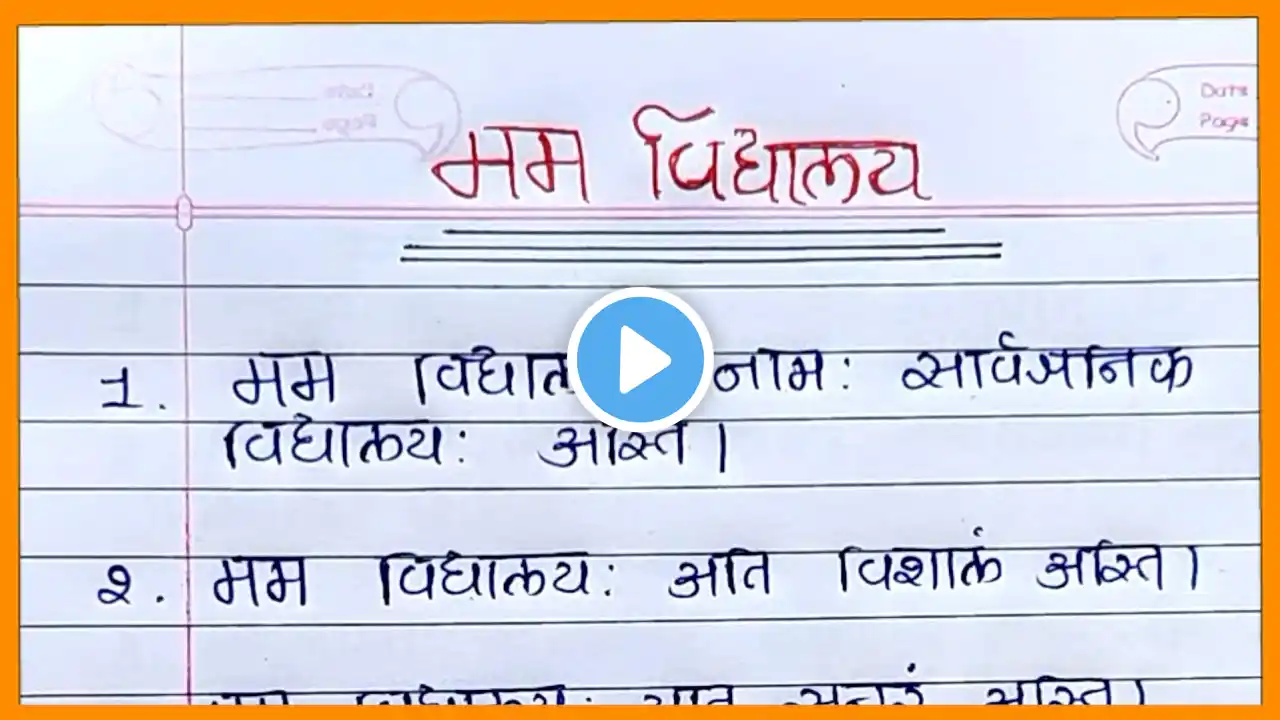 Date
Page
मम विद्यालय
1. मम विद्याल नाम: सार्वजनिक
विद्यालय: अस्ति।
२. मम विद्यालय: अति विशालं अस्ति।